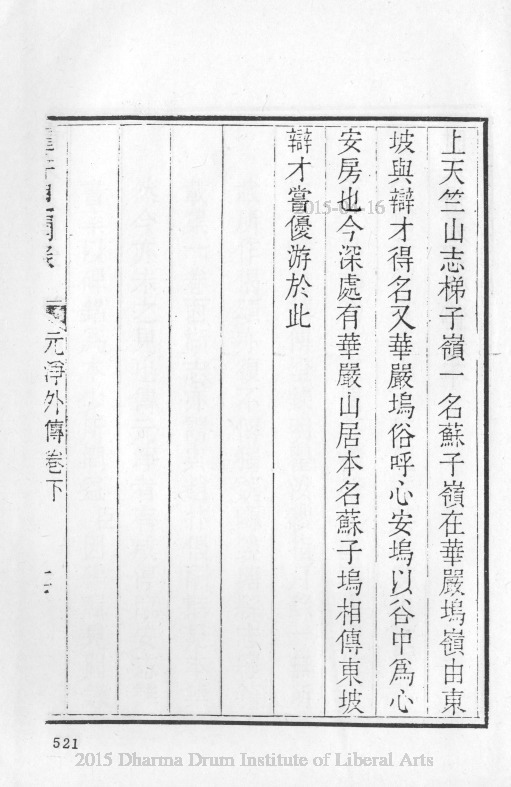 上天竺山志梯子嶺一名蘇子嶺在華嚴塢嶺由東
坡與辯才得名又華嚴塢俗呼心安塢以谷中爲心
安房也今深處有華嚴山居本名蘇子塢相傳東坡
辯才嘗優游於此
元淨外傳卷下
2015-04-16
521
2015 Dharma Drum Institute of Liberal Arts